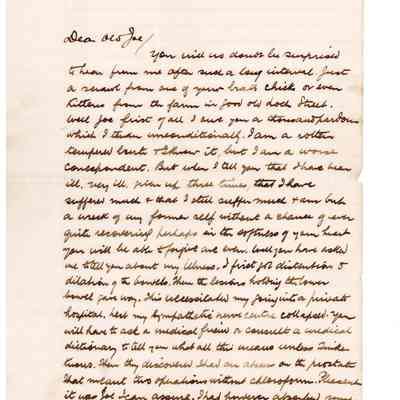 Dear Old Joe/
You will no doubt be surprised
to hear from me after such a long interval. Just
a screed from one of your brats chicks or even
Kittens from the farm in good old Loch Street.
Well Joe first of all I owe you a thousand pardons
which I tender unconditionally. I am a rotten
tempered brute & I know it, but I am a worse
correspondent. But when I tell you that I have been
ill, very ill, given up three times, that I have
suffered much & that I still suffer much & am but
a wreck of my former self without a chance of ever
quite recovering perhaps in the softness of your heart
you will be able to forgive me even. Well you have asked
me to tell you about my illness. I first got distention &
dilation of the bowels. Then the tissues holding the lower
bowel gave way. This necessitated my going into a private
hospital. Here my sympathetic nerve centre collapsed. You
will have to ask a medical friend or consult a medical
dictionary to tell you what all this means unless
Then they discovered I had an abscess on the prostate
that meant two operations without chloroform. Pleasant
it was Joe I can assure. I had however absorbed some